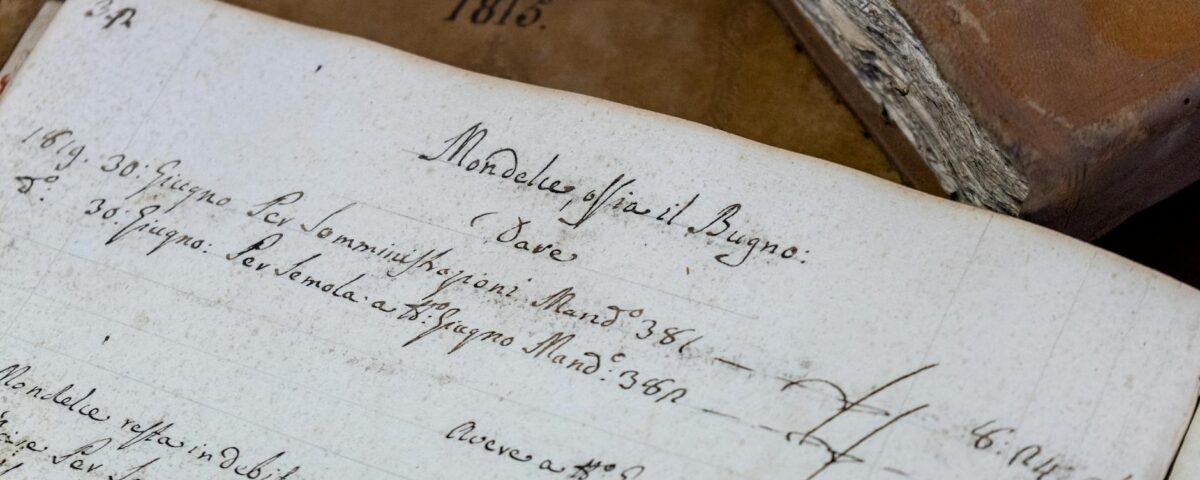 1815.
Mondelce, ossia il Bugno:
Dare
1819. 30: Giugno Per Somministrazioni Mand.º 381
d.º 30: Giugno: Per Semola a tt.º Giugno Mand.º: 382
Avere a tt.º
Mondelce resta in debit
Per